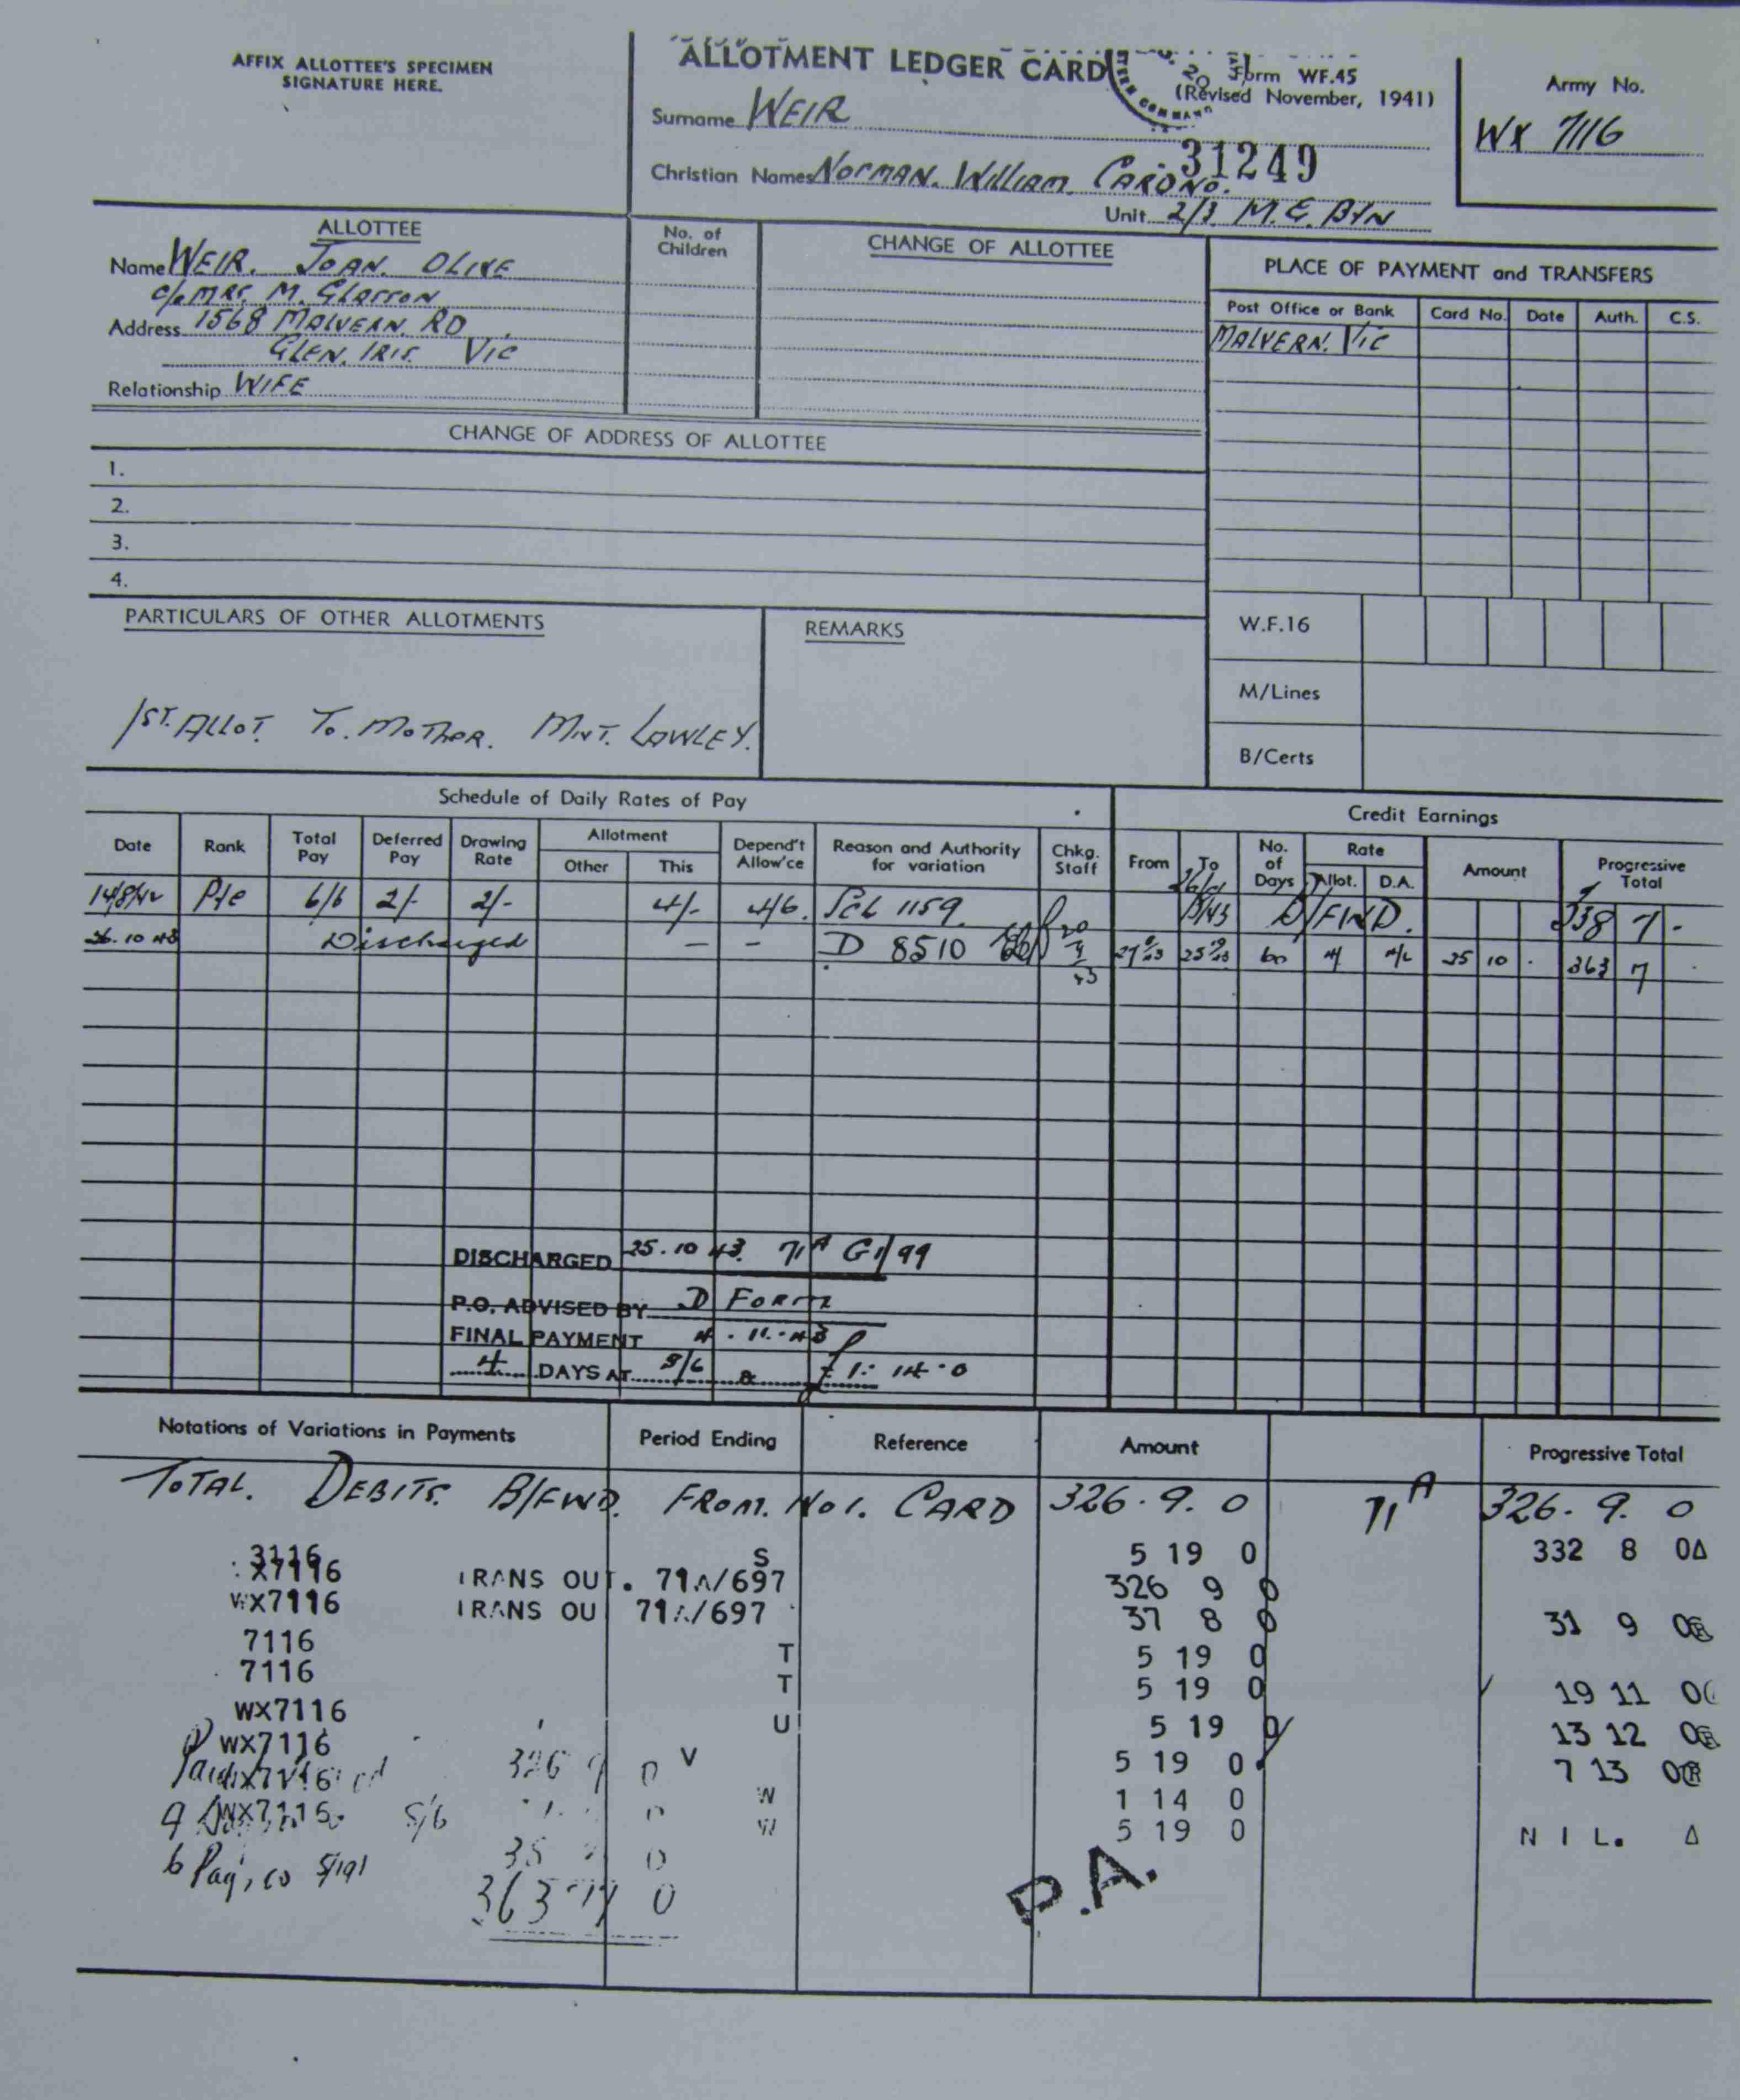 AFFIX ALLOTTEE'S SPECIMEN
SIGNATURE HERE.
ALLOTMENT LEDGER CARD
Form WF.45
(Revised November, 1941)
Army No.
WX 7116
Surname WEIR
31249
Christian Names NORMAN. WILLIAM. CARD NO.
Unit 2/3 M.G. BYN
ALLOTTEE
Name WEIR. JOAN. OLIVE
c/o MRS. M.
Address 1568 MALVERN. RD
GLEN. IRIS. VIC
Relationship WIFE
No. of
Children
CHANGE OF ALLOTTEE
PLACE OF PAYMENT and TRANSFERS
Post Office or Bank Card No. Date Auth. C.S.
MALVERN. VIC
CHANGE OF ADDRESS OF ALLOTTEE
1.
2.
3.
4.
PARTICULARS OF OTHER ALLOTMENTS
REMARKS
W.F.16
M/Lines
B/Certs
1ST. ALLOT. TO. MOTHER. MNT. LAWLEY.
Schedule of Daily Rates of Pay
Credit Earnings
Date Rank Total Pay Deferred Pay Drawing Rate Allotment Other This Depend't Allow'ce Reason and Authority for variation Chkg. Staff From To No. of Days Rate Allot. D.A. Amount Progressive Total
14/8/42 Pte 6/6 2/- 2/- 4/- 4/6. 1159. B/FWD. 338 7 -
26.10 43 Discharged - - D 8510 60 25 10 . 363 17 .
DISCHARGED 25.10 43. 71A G1/99
P.O. ADVISED BY D Form
FINAL PAYMENT 4.11.43
4 DAYS AT 8/6 & £1: 14.0
Notations of Variations in Payments Period Ending Reference Amount Progressive Total
TOTAL. DEBITS. B/FWD. FROM. NO 1. CARD 326.9.0 71A 326.9.0
3116 S 5 19 0 332 8 0Δ
X7116 TRANS OUT. 71A/697 326 9 0
WX7116 TRANS OU 71A/697 37 8 0 31 9 0
7116 T 5 19 0
7116 T 5 19 0 19 11 0
WX7116 U 5 19 0 13 12 0
WX7116 326 9 0 V 5 19 0 7 13 0Ⓡ
W 1 14 0
WX7116 W 5 19 0 NIL. Δ
363 17 0
P.A.